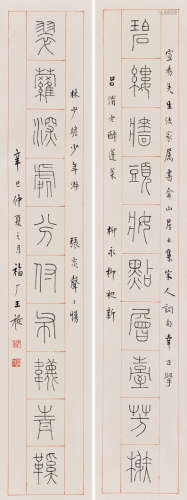 先生法家屬書
山居士集宋人詞句
碧縷牆頭妝點層臺芳榭
呂渭老醉蓬萊 柳永柳初新
林少瞻少年游 張炎聲聲慢
翠蘿深處分付布韈青鞵
辛巳仲夏之月福厂王禔